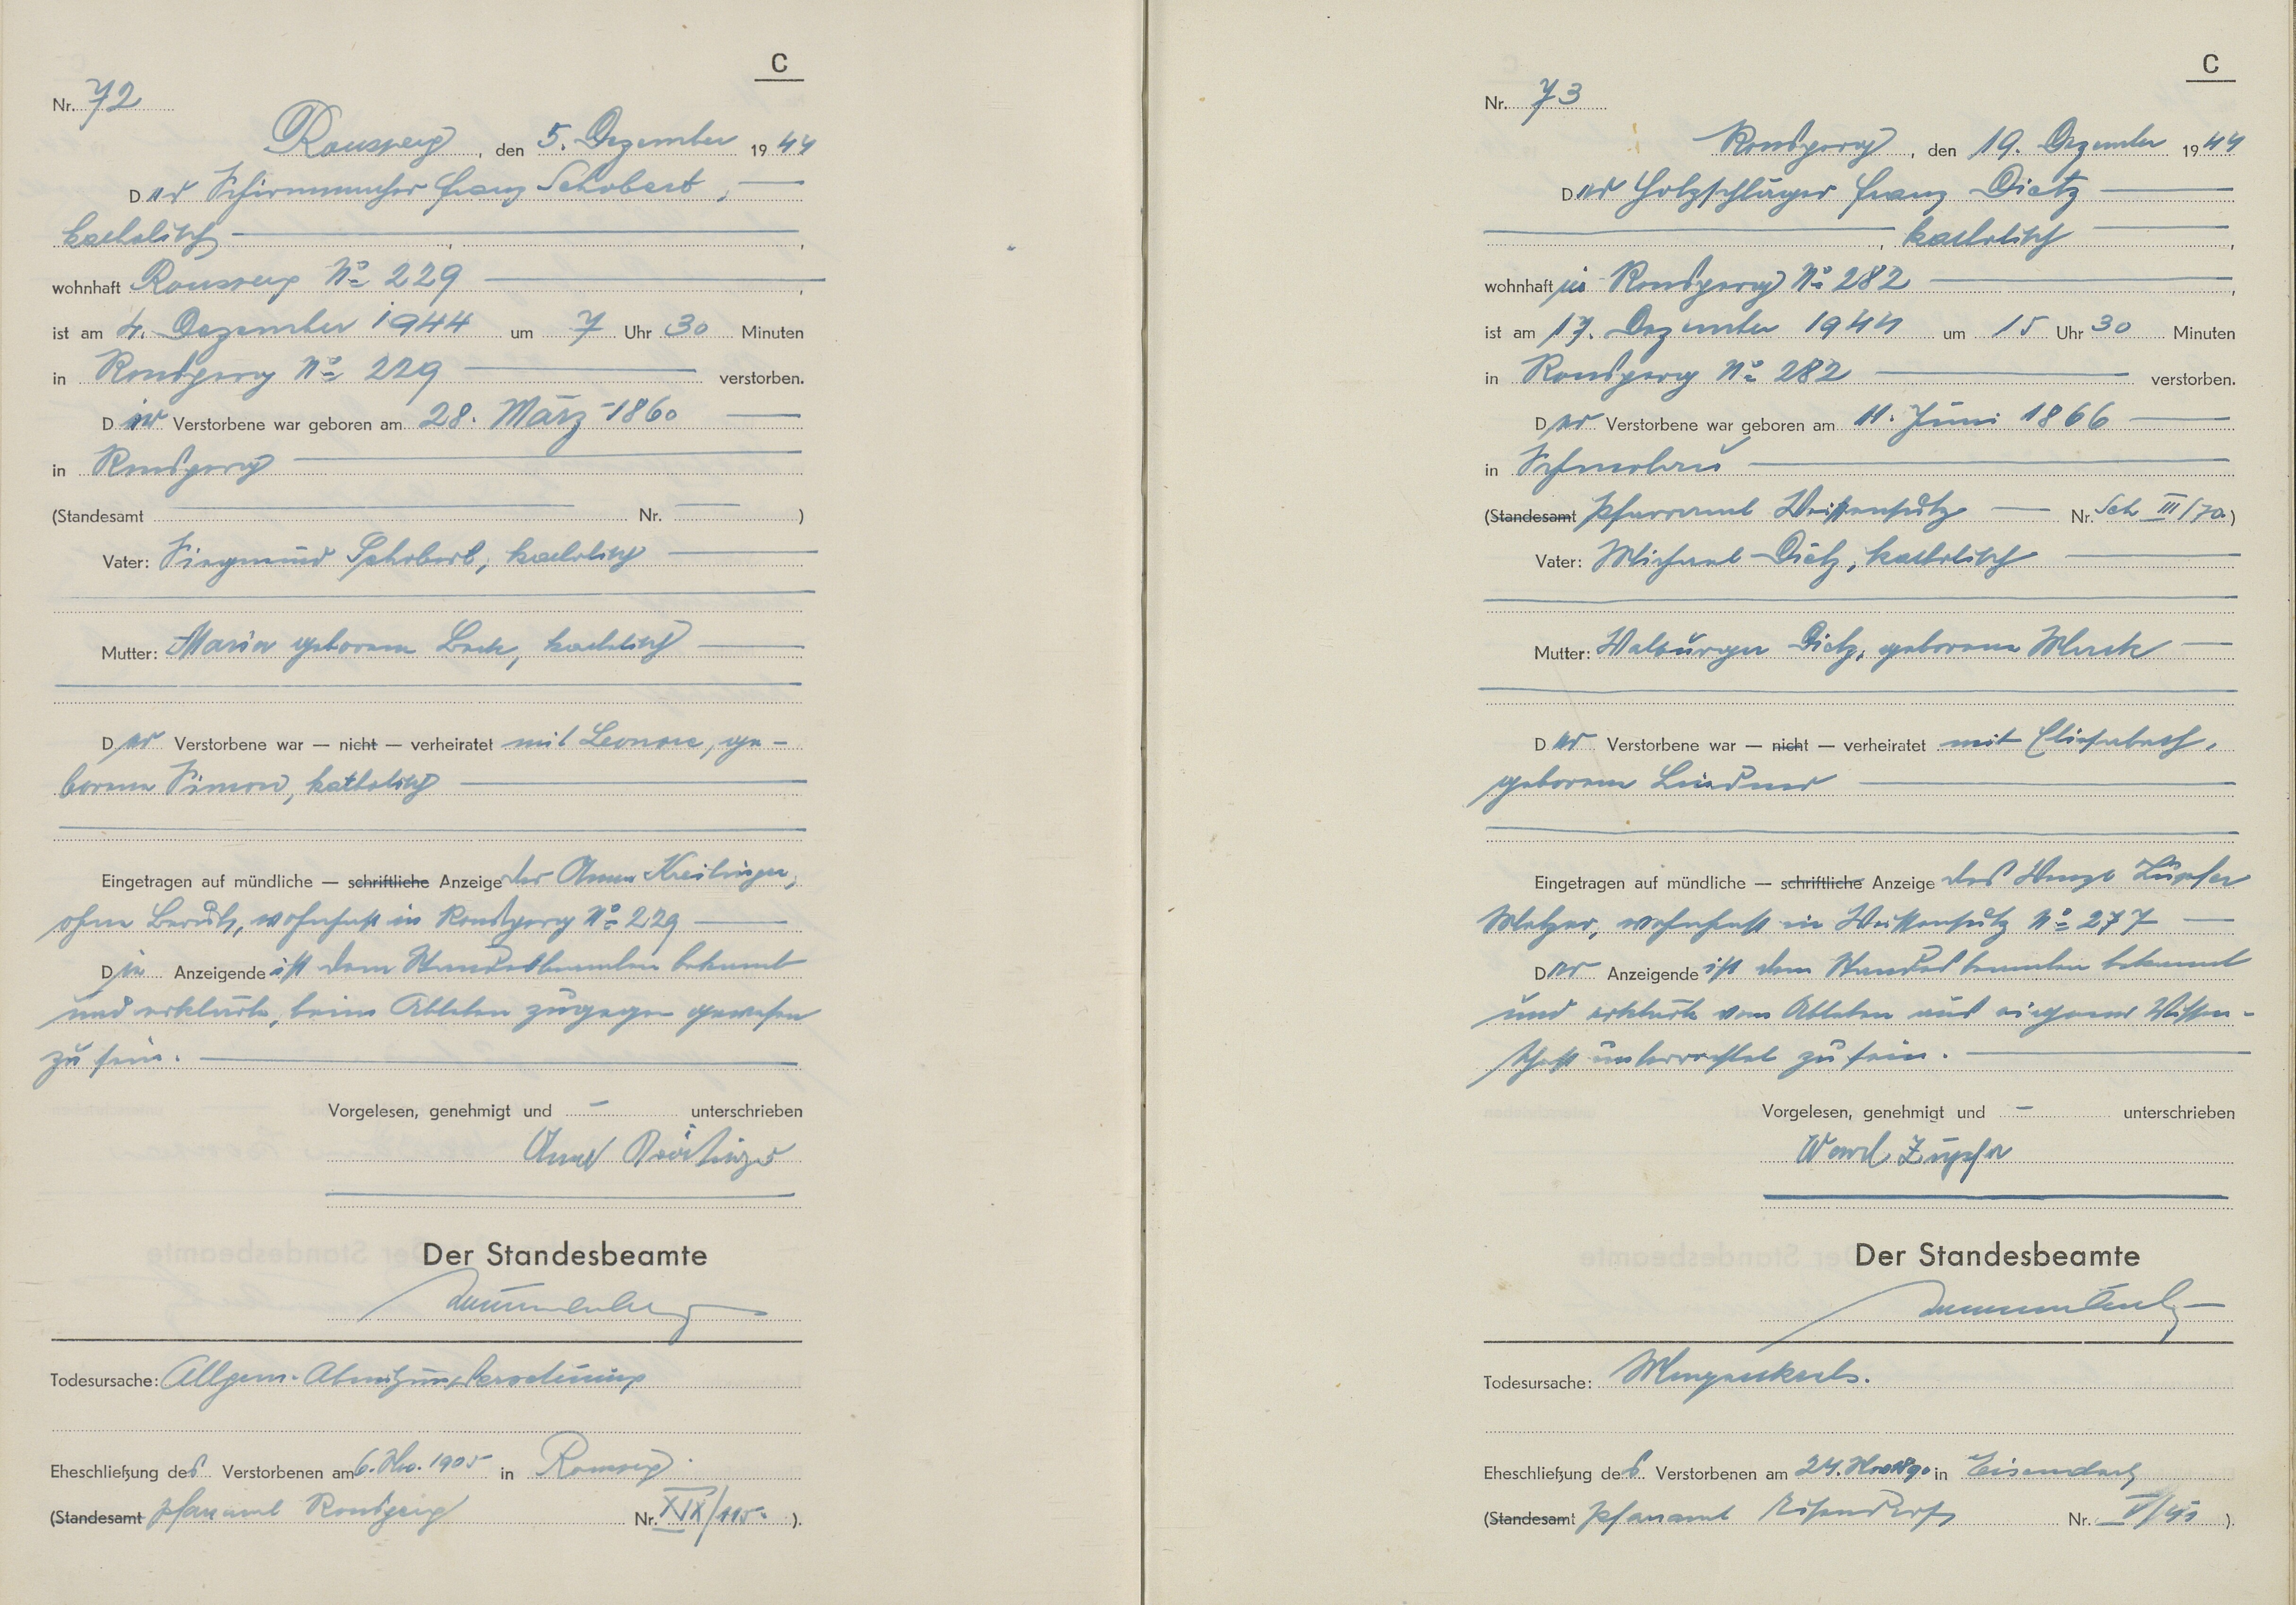 C
Nr. 72
Ronsperg, den 5. Dezember 1944
Der Schirmmacher Franz Schobert,
katholisch
wohnhaft Ronsperg No 229
ist am 4. Dezember 1944 um 7 Uhr 30 Minuten
in Ronsperg No 229 verstorben.
Der Verstorbene war geboren am 28. März 1860
in Ronsperg
(Standesamt Nr. )
Vater: Siegmund Schobert, katholisch
Mutter: Maria geborene Beck, katholisch
Der Verstorbene war — nicht — verheiratet mit Leonore, ge-
borene Simon, katholisch
Eingetragen auf mündliche — schriftliche Anzeige der Anna
ohne Beruf, wohnhaft in Ronsperg No 229
Die Anzeigende ist dem Standesbeamten bekannt
und erklärte, beim Ableben zugegen gewesen
zu sein.
Vorgelesen, genehmigt und – unterschrieben
Anna
Der Standesbeamte
Todesursache: Allgem.
Eheschließung des Verstorbenen am 6. 1905 in Ronsperg
(Standesamt Pfarramt Ronsperg Nr. XIX/115 ).
C
Nr. 73
Ronsperg, den 19. Dezember 1944
Der Holzschläger Franz Dietz
, katholisch
wohnhaft in Ronsperg No 282
ist am 17. Dezember 1944 um 15 Uhr 30 Minuten
in Ronsperg No 282 verstorben.
Der Verstorbene war geboren am 11. Juni 1866
in Schmolau
(Standesamt Pfarramt Weissensulz Nr. Sch III/70)
Vater: Michael Dietz, katholisch
Mutter: Walburga Dietz, geborene
Der Verstorbene war — nicht — verheiratet mit Elisabeth,
geborene Lindner
Eingetragen auf mündliche — schriftliche Anzeige des Wenzl Zupfer
wohnhaft in Weissensulz No 277
Der Anzeigende ist dem Standesbeamten bekannt
und erklärte vom Ableben aus eigener Wissen-
schaft unterrichtet zu sein.
Vorgelesen, genehmigt und – unterschrieben
Wenzl Zupfer
Der Standesbeamte
Todesursache: Magenkrebs.
Eheschließung des Verstorbenen am 24. Nov 1890 in Eisendorf
(Standesamt Pfarramt Eisendorf Nr. ).